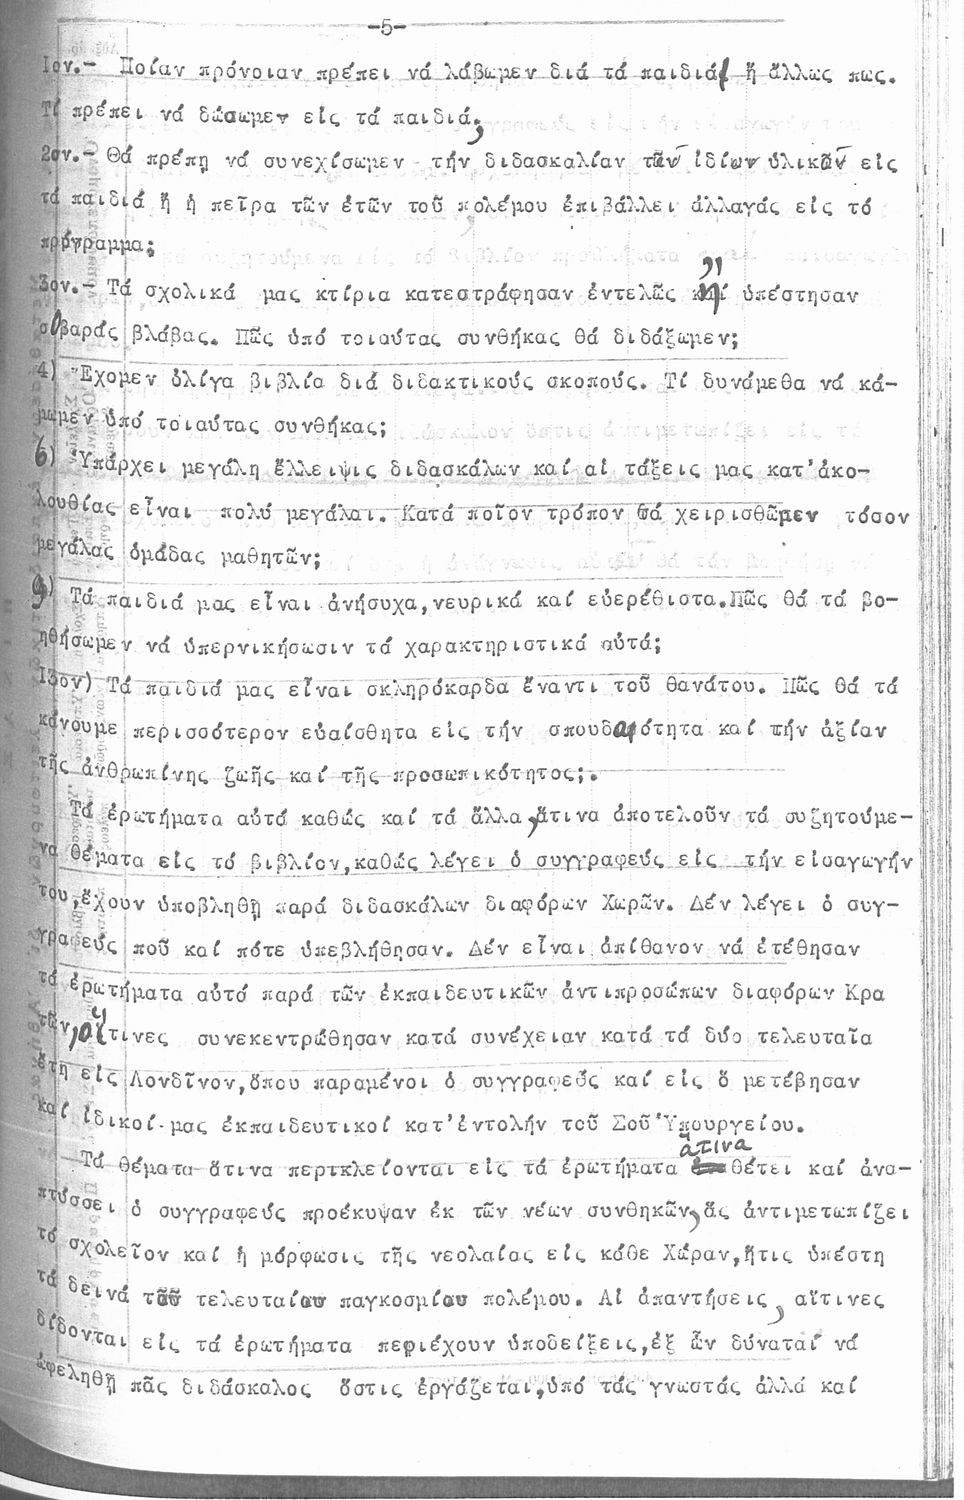 -5-
1ον.- Ποίαν πρόνοιαν πρέπει νά λάβωμεν διά τά παιδιά ἤ ἄλλως πως.
Τί πρέπει νά δώσωμεν εἰς τά παιδιά;
2ον.- Θά πρέπῃ νά συνεχίσωμεν τήν διδασκαλίαν τῶν ἰδίων ὑλικῶν εἰς
τά παιδιά ἤ ἡ πεῖρα τῶν ἐτῶν τοῦ πολέμου ἐπιβάλλει ἀλλαγάς εἰς τό
πρόγραμμα;
3ον.- Τά σχολικά μας κτίρια κατεστράφησαν ἐντελῶς ἤ ὑπέστησαν
σοβαράς βλάβας. Πῶς ὑπό τοιαύτας συνθήκας θά διδάξωμεν;
4) Ἔχομεν ὀλίγα βιβλία διά διδακτικούς σκοπούς. Τί δυνάμεθα νά κά-
μωμεν ὑπό τοιαύτας συνθήκας;
6) Ὑπάρχει μεγάλη ἔλλειψις διδασκάλων καί αἱ τάξεις μας κατ'ἀκο-
λουθίας εἶναι πολύ μεγάλαι. Κατά ποῖον τρόπον θά χειρισθῶμεν τόσον
μεγάλας ὁμάδας μαθητῶν;
9) Τά παιδιά μας εἶναι ἀνήσυχα,νευρικά καί εὐερέθιστα.Πῶς θά τά βο-
ηθήσωμεν νά ὑπερνικήσωσιν τά χαρακτηριστικά αὐτά;
13ον) Τά παιδιά μας εἶναι σκληρόκαρδα ἔναντι τοῦ θανάτου. Πῶς θά τά
κάνουμε περισσότερον εὐαίσθητα εἰς τήν σπουδαιότητα καί τήν ἀξίαν
τῆς ἀνθρωπίνης ζωῆς καί τῆς προσωπικότητος;.
Τά ἐρωτήματα αὐτά καθώς καί τά ἄλλα,ἅτινα ἀποτελοῦν τά συζητούμε-
να θέματα εἰς τό βιβλίον,καθώς λέγει ὁ συγγραφεύς εἰς τήν εἰσαγωγήν
του,ἔχουν ὑποβληθῇ παρά διδασκάλων διαφόρων Χωρῶν. Δέν λέγει ὁ συγ-
γραφεύς ποῦ καί πότε ὑπεβλήθησαν. Δέν εἶναι ἀπίθανον νά ἐτέθησαν
τά ἐρωτήματα αὐτά παρά τῶν ἐκπαιδευτικῶν ἀντιπροσώπων διαφόρων Κρα
τῶν,οἵτινες συνεκεντρώθησαν κατά συνέχειαν κατά τά δύο τελευταῖα
ἔτη εἰς Λονδῖνον,ὅπου παραμένοι ὁ συγγραφεύς καί εἰς ὅ μετέβησαν
καί ἰδικοί μας ἐκπαιδευτικοί κατ'ἐντολήν τοῦ Σοῦ Ὑπουργείου.
Τά θέματα ἅτινα περικλείονται εἰς τά ἐρωτήματα ἅτινα θέτει καί ἀνα-
πτύσσει ὁ συγγραφεύς προέκυψαν ἐκ τῶν νέων συνθηκῶν,ἅς ἀντιμετωπίζει
τό σχολεῖον καί ἡ μόρφωσις τῆς νεολαίας εἰς κάθε Χώραν,ἥτις ὑπέστη
τά δεινά τοῦ τελευταίου παγκοσμίου πολέμου. Αἱ ἀπαντήσεις, αἵτινες
δίδονται εἰς τά ἐρωτήματα περιέχουν ὑποδείξεις,ἐξ ὧν δύναται νά
ὠφεληθῇ πᾶς διδάσκαλος ὅστις ἐργάζεται,ὑπό τάς γνωστάς ἀλλά καί